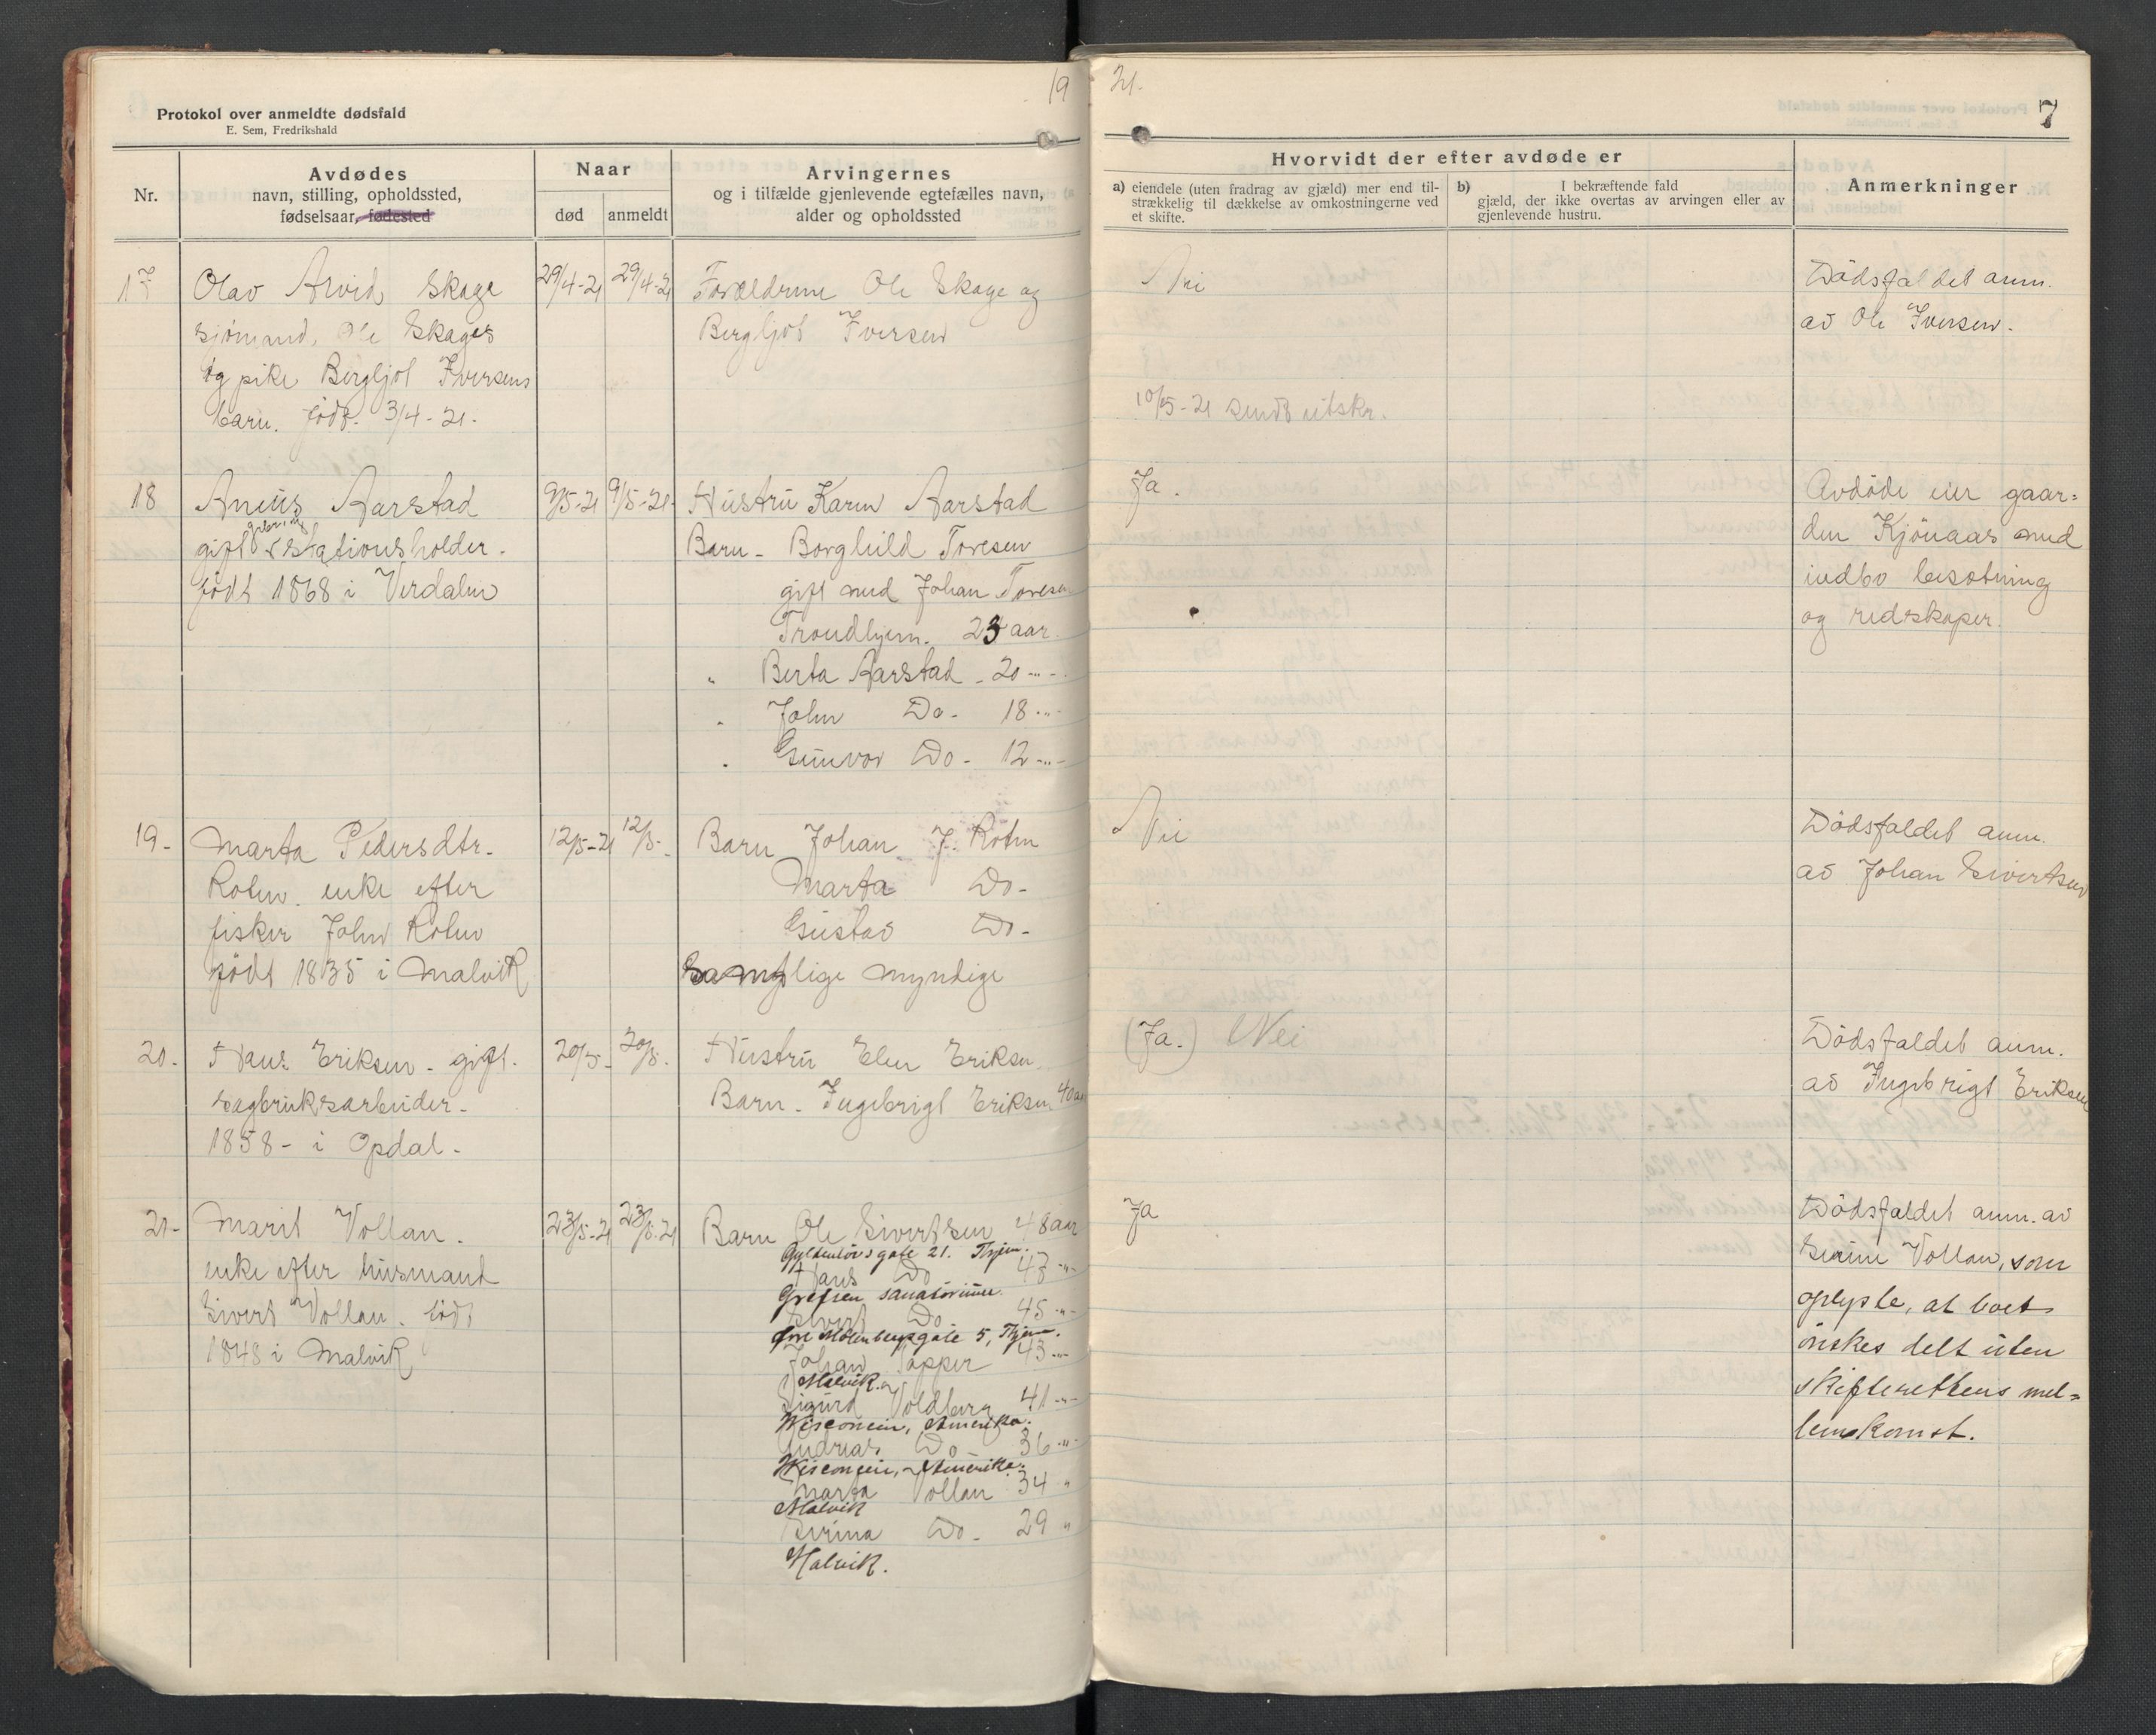 19
21.
7
Protokol over anmeldte dødsfald
E. Sem, Fredrikshald
Nr.
Avdødes
navn, stilling, opholdssted,
fødselsaar, fødested
Naar
død
anmeldt
Arvingernes
og i tilfælde gjenlevende egtefælles navn,
alder og opholdssted
Hvorvidt der efter avdøde er
a) eiendele (uten fradrag av gjæld) mer end til-
strækkelig til dækkelse av omkostningerne ved
et skifte.
b) I bekræftende fald
gjæld, der ikke overtas av arvingen eller av
gjenlevende hustru.
Anmerkninger
17
Olav Arvid Skage
sjømand, Ole Skages
og pike Bergljot Iversens
barn. født. 3/4-21.
29/4-21
29/4-21
Forældrene Ole Skage og
Bergljot Iversen
Nei
10/5-21 sendt utskr.
Dödsfaldet anm.
av Ole Iversen.
18
Aneus Aarstad
gift stationsholder.
født 1868 i Verdalen
9/5-21
9/5-21
Hustru Karen Aarstad
Barn - Borghild Toresen
gift med Johan Toresen
Trondhjem. 23 aar.
" Berta Aarstad - 20 -"-
" John Do - 18 -"-
" Gunvor Do - 12 -"-
Ja.
Avdöde eier gaar=
den Kjönaas med
indbo besetning
og redskaper.
19-
Marta Pedersdtr.
Rotm. enke efter
fisker John Rotm
født 1835 i Malvik
12/5-21
12/5-
Barn Johan J. Rotm
Marta Do-
Gustav Do-
Samtlige myndige
Nei
Dödsfaldet anm.
av Johan Sivertsen
20-
Hans Eriksen - gift.
sagbruksarbeider-
1858- i Opdal-
20/5-
20/5.
Hustru Elen Eriksen
Barn - Ingebrigt Eriksen 40 aar
(Ja.) Nei
Dödsfaldet anm.
av Ingebrigt Eriksen
21-
Marit Vollan.
enke efter husmand
Sivert Vollan. født
1848 i Malvik
23/5-21
23/5-21
Barn Ole Sivertsen 48 aar
Gyldenløvsgate 21. Thjem.
Hans Do 47 -"-
Grefsen sanatorium.
Sivert Do 45 -"-
Øvre Møllenbergsgate 5, Thjem.
Johan Topper 43 -"-
Malvik.
Sigurd Voldberg 41 -"-
Wisconsin, Amerika.
Andreas Do 36 -"-
Wisconsin, Amerika.
Marta Vollan 34 "
Malvik
Sirina Do - 29 "
Malvik.
Ja
Dödsfaldet anm. av
Sirine Vollan, som
oplyste, at boet
önskes delt uten
skifterettens mel=
lemkomst.